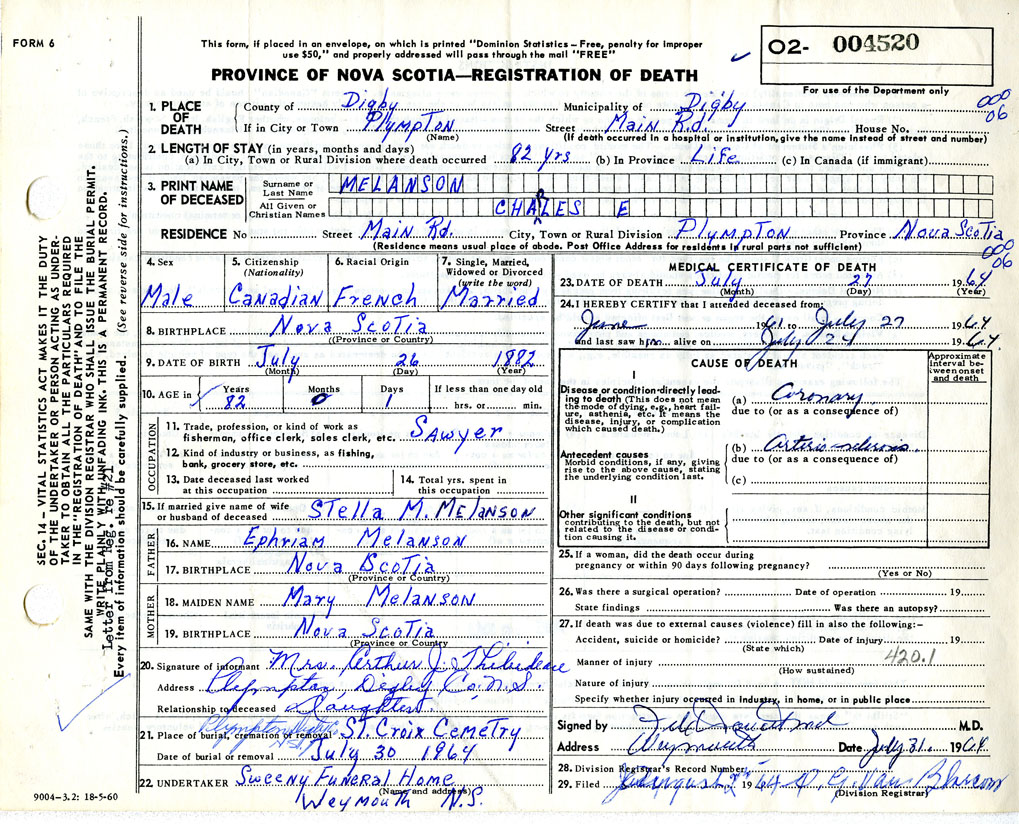 FORM 6
This form, if placed in an envelope, on which is printed "Dominion Statistics – Free, penalty for improper
use $50," and properly addressed will pass through the mail "FREE"
PROVINCE OF NOVA SCOTIA—REGISTRATION OF DEATH
O2- 004520
For use of the Department only
000
06
1. PLACE OF DEATH
County of Digby Municipality of Digby
If in City or Town Plympton Street Main Rd. House No.
(Name) (If death occurred in a hospital or institution, give the name instead of street and number)
2. LENGTH OF STAY (in years, months and days)
(a) In City, Town or Rural Division where death occurred 82 yrs (b) In Province Life (c) In Canada (if immigrant)
3. PRINT NAME OF DECEASED
Surname or Last Name MELANSON
All Given or Christian Names CHARLES E
RESIDENCE No Street Main Rd. City, Town or Rural Division Plympton Province Nova Scotia
(Residence means usual place of abode. Post Office Address for residents in rural parts not sufficient)
000
06
4. Sex Male
5. Citizenship (Nationality) Canadian
6. Racial Origin French
7. Single, Married, Widowed or Divorced (write the word) Married
8. BIRTHPLACE Nova Scotia
(Province or Country)
9. DATE OF BIRTH July 26 1882
(Month) (Day) (Year)
10. AGE in Years 82 Months 0 Days 1 If less than one day old hrs. or min.
OCCUPATION
11. Trade, profession, or kind of work as
fisherman, office clerk, sales clerk, etc. Sawyer
12. Kind of industry or business, as fishing,
bank, grocery store, etc.
13. Date deceased last worked
at this occupation
14. Total yrs. spent in
this occupation
15. If married give name of wife
or husband of deceased Stella M. Melanson
FATHER
16. NAME Ephriam Melanson
17. BIRTHPLACE Nova Scotia
(Province or Country)
MOTHER
18. MAIDEN NAME Mary Melanson
19. BIRTHPLACE Nova Scotia
(Province or Country)
20. Signature of informant Mrs. Arthur J. Thibideau
Address Plympton Digby Co. N.S.
Relationship to deceased Daughter
Plympton
21. Place of burial, cremation or removal St. Croix Cemetry
Date of burial or removal July 30 1964
22. UNDERTAKER Sweeny Funeral Home
(Name and address)
Weymouth N.S.
MEDICAL CERTIFICATE OF DEATH
23. DATE OF DEATH July 27 1964
(Month) (Day) (Year)
24. I HEREBY CERTIFY that I attended deceased from:
June 1961 to July 27 1964
and last saw him alive on July 24 1964.
CAUSE OF DEATH
Approximate interval between onset and death
I
Disease or condition directly leading to death (This does not mean the mode of dying, e.g., heart failure, asthenia, etc. It means the disease, injury, or complication which caused death.)
(a) Coronary
due to (or as a consequence of)
Antecedent causes
Morbid conditions, if any, giving rise to the above cause, stating the underlying condition last.
(b) Arterio sclerosis
due to (or as a consequence of)
(c)
II
Other significant conditions
contributing to the death, but not related to the disease or condition causing it.
25. If a woman, did the death occur during
pregnancy or within 90 days following pregnancy?
(Yes or No)
26. Was there a surgical operation? Date of operation 19
State findings Was there an autopsy?
27. If death was due to external causes (violence) fill in also the following:–
Accident, suicide or homicide? Date of injury 19
(State which)
420.1
Manner of injury
(How sustained)
Nature of injury
Specify whether injury occurred in industry, in home, or in public place
Signed by M.D.
Address Weymouth Date July 31. 1964.
28. Division Registrar's Record Number
29. Filed August 1964
(Division Registrar)
SEC. 14 – VITAL STATISTICS ACT MAKES IT THE DUTY
OF THE UNDERTAKER OR PERSON ACTING AS UNDER-
TAKER TO OBTAIN ALL THE PARTICULARS REQUIRED
IN THE "REGISTRATION OF DEATH" AND TO FILE THE
SAME WITH THE DIVISION REGISTRAR WHO SHALL ISSUE THE BURIAL PERMIT.
WRITE PLAINLY WITH UNFADING INK. THIS IS A PERMANENT RECORD.
Letter from Reg. re #21
Every item of information should be carefully supplied. (See reverse side for instructions.)
9004–3.2: 18-5-60